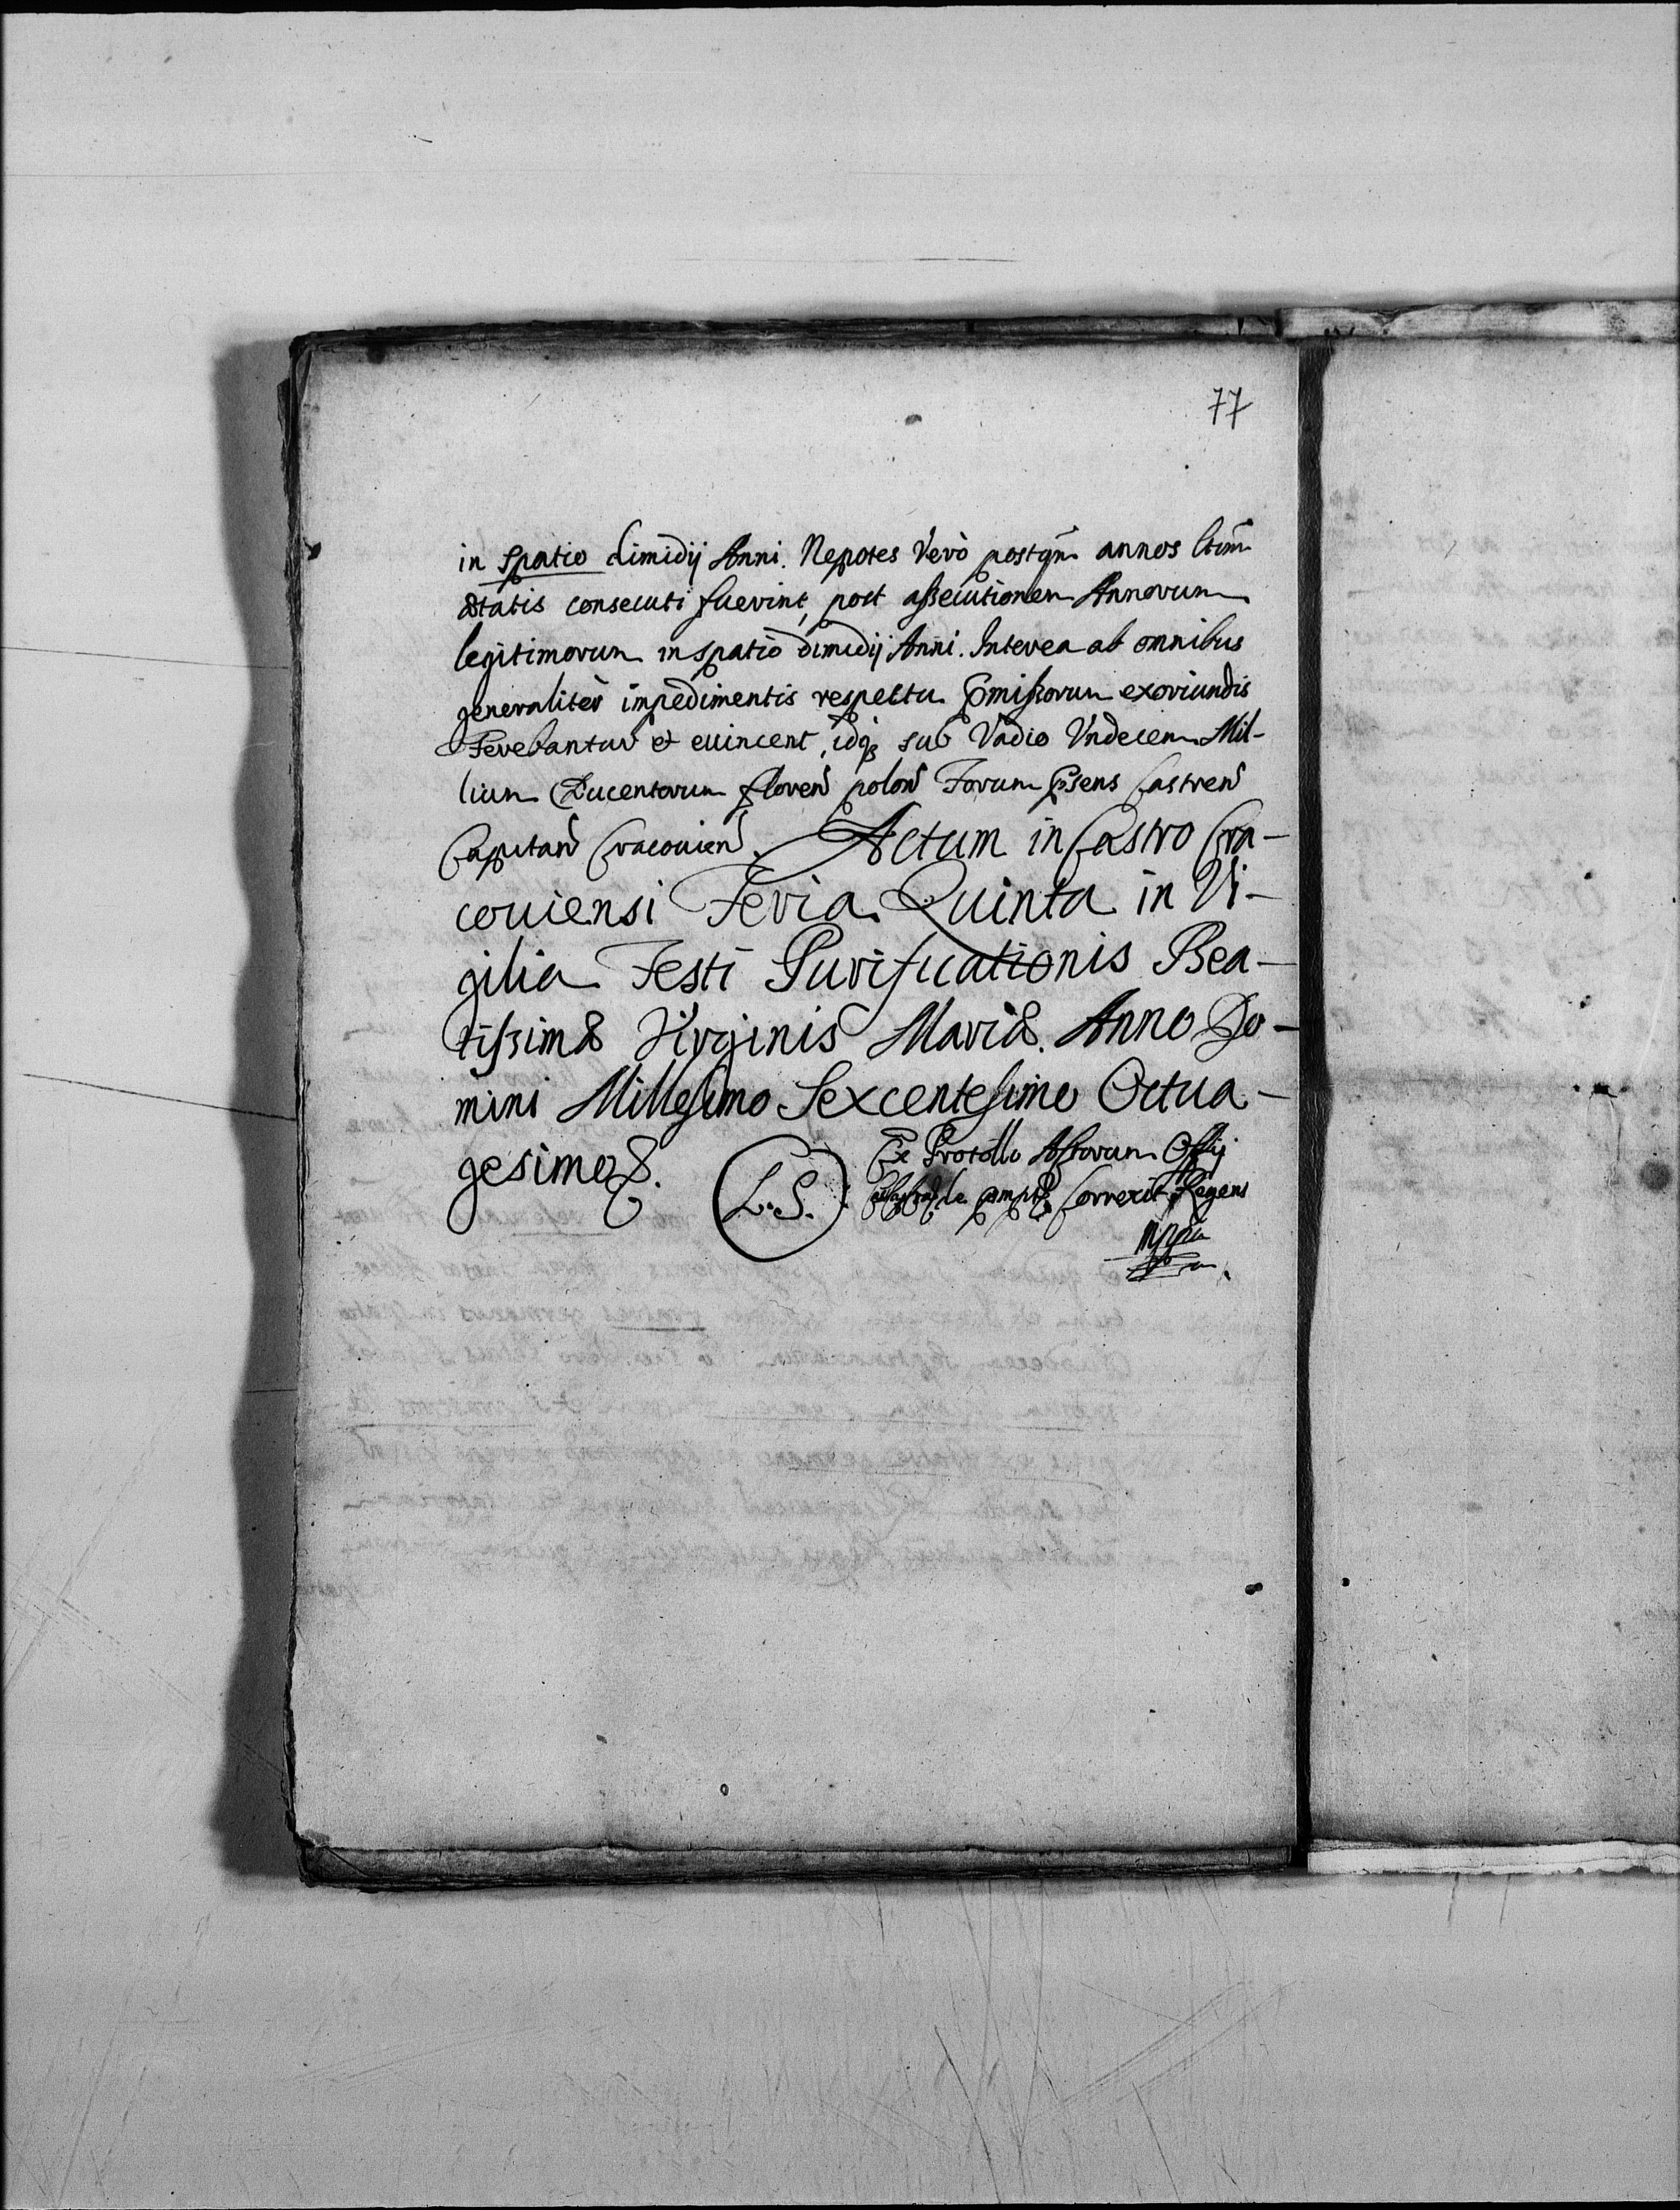 77
in spatio dimidij Anni. Nepotes Verò postqm̃ annos ltim̃
ætatis consecuti fuerint, post assecutionem Annorum
legitimorum in spatio dimidij Anni. Interea ab omnibus
generaliter impedimentis respectu pmissorum exoriundis
Terebantur et euincent, idq; sub Vadio Vndecem Mil-
lium Ducentorum floren polon Forum psens Castren
Capitan Cracouien. Actum in Castro Cra-
couiensi Feria Quinta in Vi-
gilia Festi Purificationis Bea-
tissimæ Virginis Mariæ. Anno Do-
mini Millesimo Sexcentesimo Octua-
gesimo.
L.S.
Ex Protollo Actorum Offij
correxit Regens
mppa